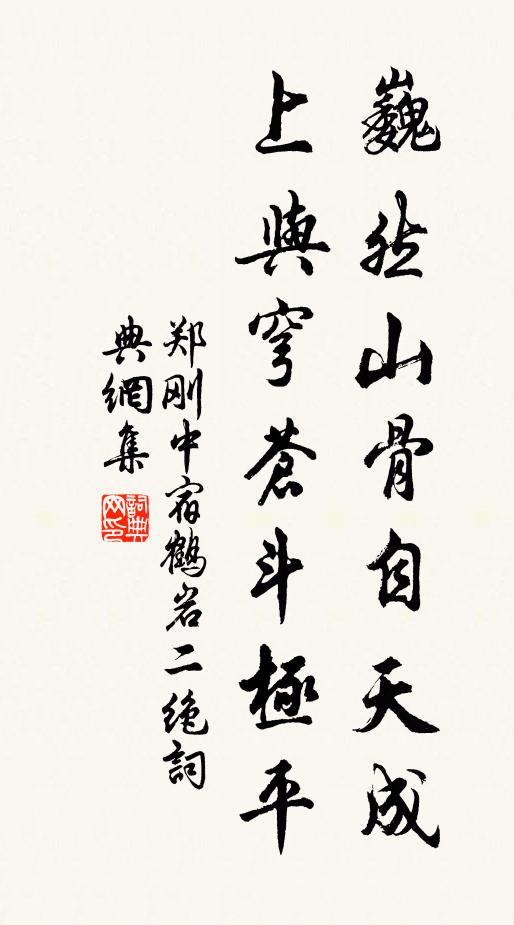 巍然山骨自天成
上與穹蒼斗極平
郑刚中宿鶴岩二绝詞
典網集
詞典
网印